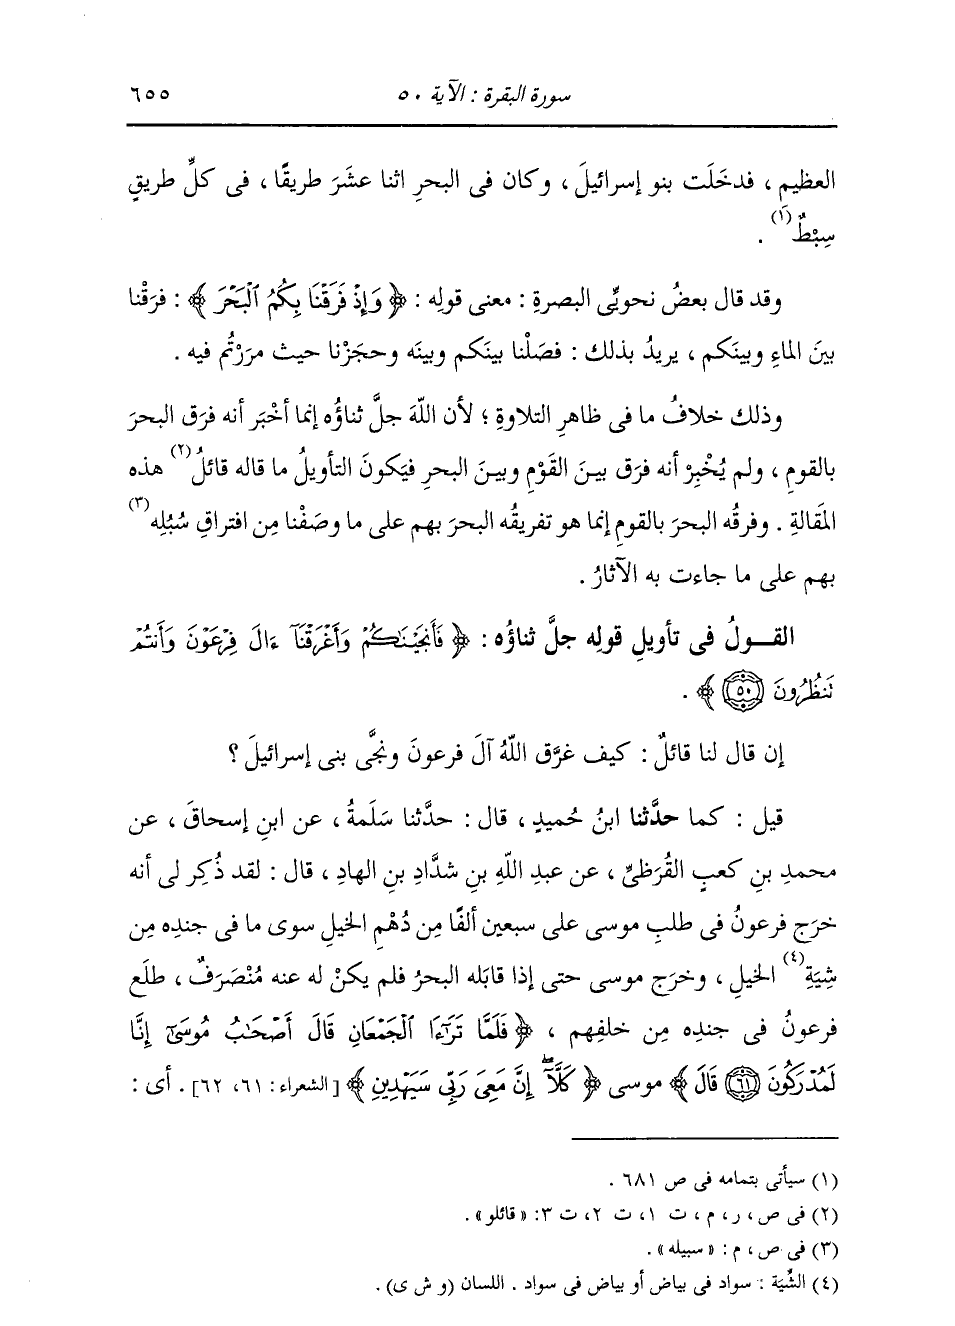 سورة البقرة : الآية ٥٠ ٦٥٥
العظيمِ ، فدخَلَت بنو إسرائيلَ ، وكان فى البحرِ اثنا عشَرَ طريقًا ، فى كلِّ طريقٍ
سِبْطٌ(١) .
وقد قال بعضُ نحويِّى البصرةِ : معنى قولِه : ﴿ وَإِذْ فَرَقْنَا بِكُمُ ٱلْبَحْرَ ﴾ : فرَقْنا
بينَ الماءِ وبينَكم ، يريدُ بذلك : فصَلْنا بينَكم وبينَه وحجَزْنا حيث مرَرْتُم فيه .
وذلك خلافُ ما فى ظاهرِ التلاوةِ ؛ لأن اللَّهَ جلَّ ثناؤُه إنما أخْبَر أنه فرَق البحرَ
بالقومِ ، ولم يُخْبِرْ أنه فرَق بينَ القَوْمِ وبينَ البحرِ فيَكونَ التأويلُ ما قاله قائلُ(٢) هذه
المَقالةِ . وفرقُه البحرَ بالقومِ إنما هو تفريقُه البحرَ بهم على ما وصَفْنا مِن افتراقِ سُبُلِه(٣)
بهم على ما جاءت به الآثارُ .
القــولُ فى تأويلِ قولِه جلَّ ثناؤُه : ﴿ فَأَنجَيْنَـٰكُمْ وَأَغْرَقْنَآ ءَالَ فِرْعَوْنَ وَأَنتُمْ
تَنظُرُونَ ﴿٥٠﴾ ﴾ .
إن قال لنا قائلٌ : كيف غرَّق اللَّهُ آلَ فرعونَ ونجَّى بنى إسرائيلَ ؟
قيل : كما حدَّثنا ابنُ حُميدٍ ، قال : حدَّثنا سَلَمةُ ، عن ابنِ إسحاقَ ، عن
محمدِ بنِ كعبٍ القُرَظىِّ ، عن عبدِ اللَّهِ بنِ شدَّادِ بنِ الهادِ ، قال : لقد ذُكِر لى أنه
خرَج فرعونُ فى طلبِ موسى على سبعين ألفًا مِن دُهْمِ الخيلِ سوى ما فى جندِه مِن
شِيَةِ(٤) الخيلِ ، وخرَج موسى حتى إذا قابَله البحرُ فلم يكنْ له عنه مُنْصَرَفٌ ، طلَع
فرعونُ فى جندِه مِن خلفِهم ، ﴿ فَلَمَّا تَرَٰٓءَا ٱلْجَمْعَانِ قَالَ أَصْحَـٰبُ مُوسَىٰٓ إِنَّا
لَمُدْرَكُونَ ﴿٦١﴾ قَالَ ﴾ موسى ﴿ كَلَّآ إِنَّ مَعِىَ رَبِّى سَيَهْدِينِ ﴾ [ الشعراء : ٦١، ٦٢] . أى :
(١) سيأتى بتمامه فى ص ٦٨١ .
(٢) فى ص ، ر ، م ، ت ١، ت ٢، ت ٣: « قائلو » .
(٣) فى ص ، م : « سبيله » .
(٤) الشِّيَة : سواد فى بياض أو بياض فى سواد . اللسان (و ش ى) .